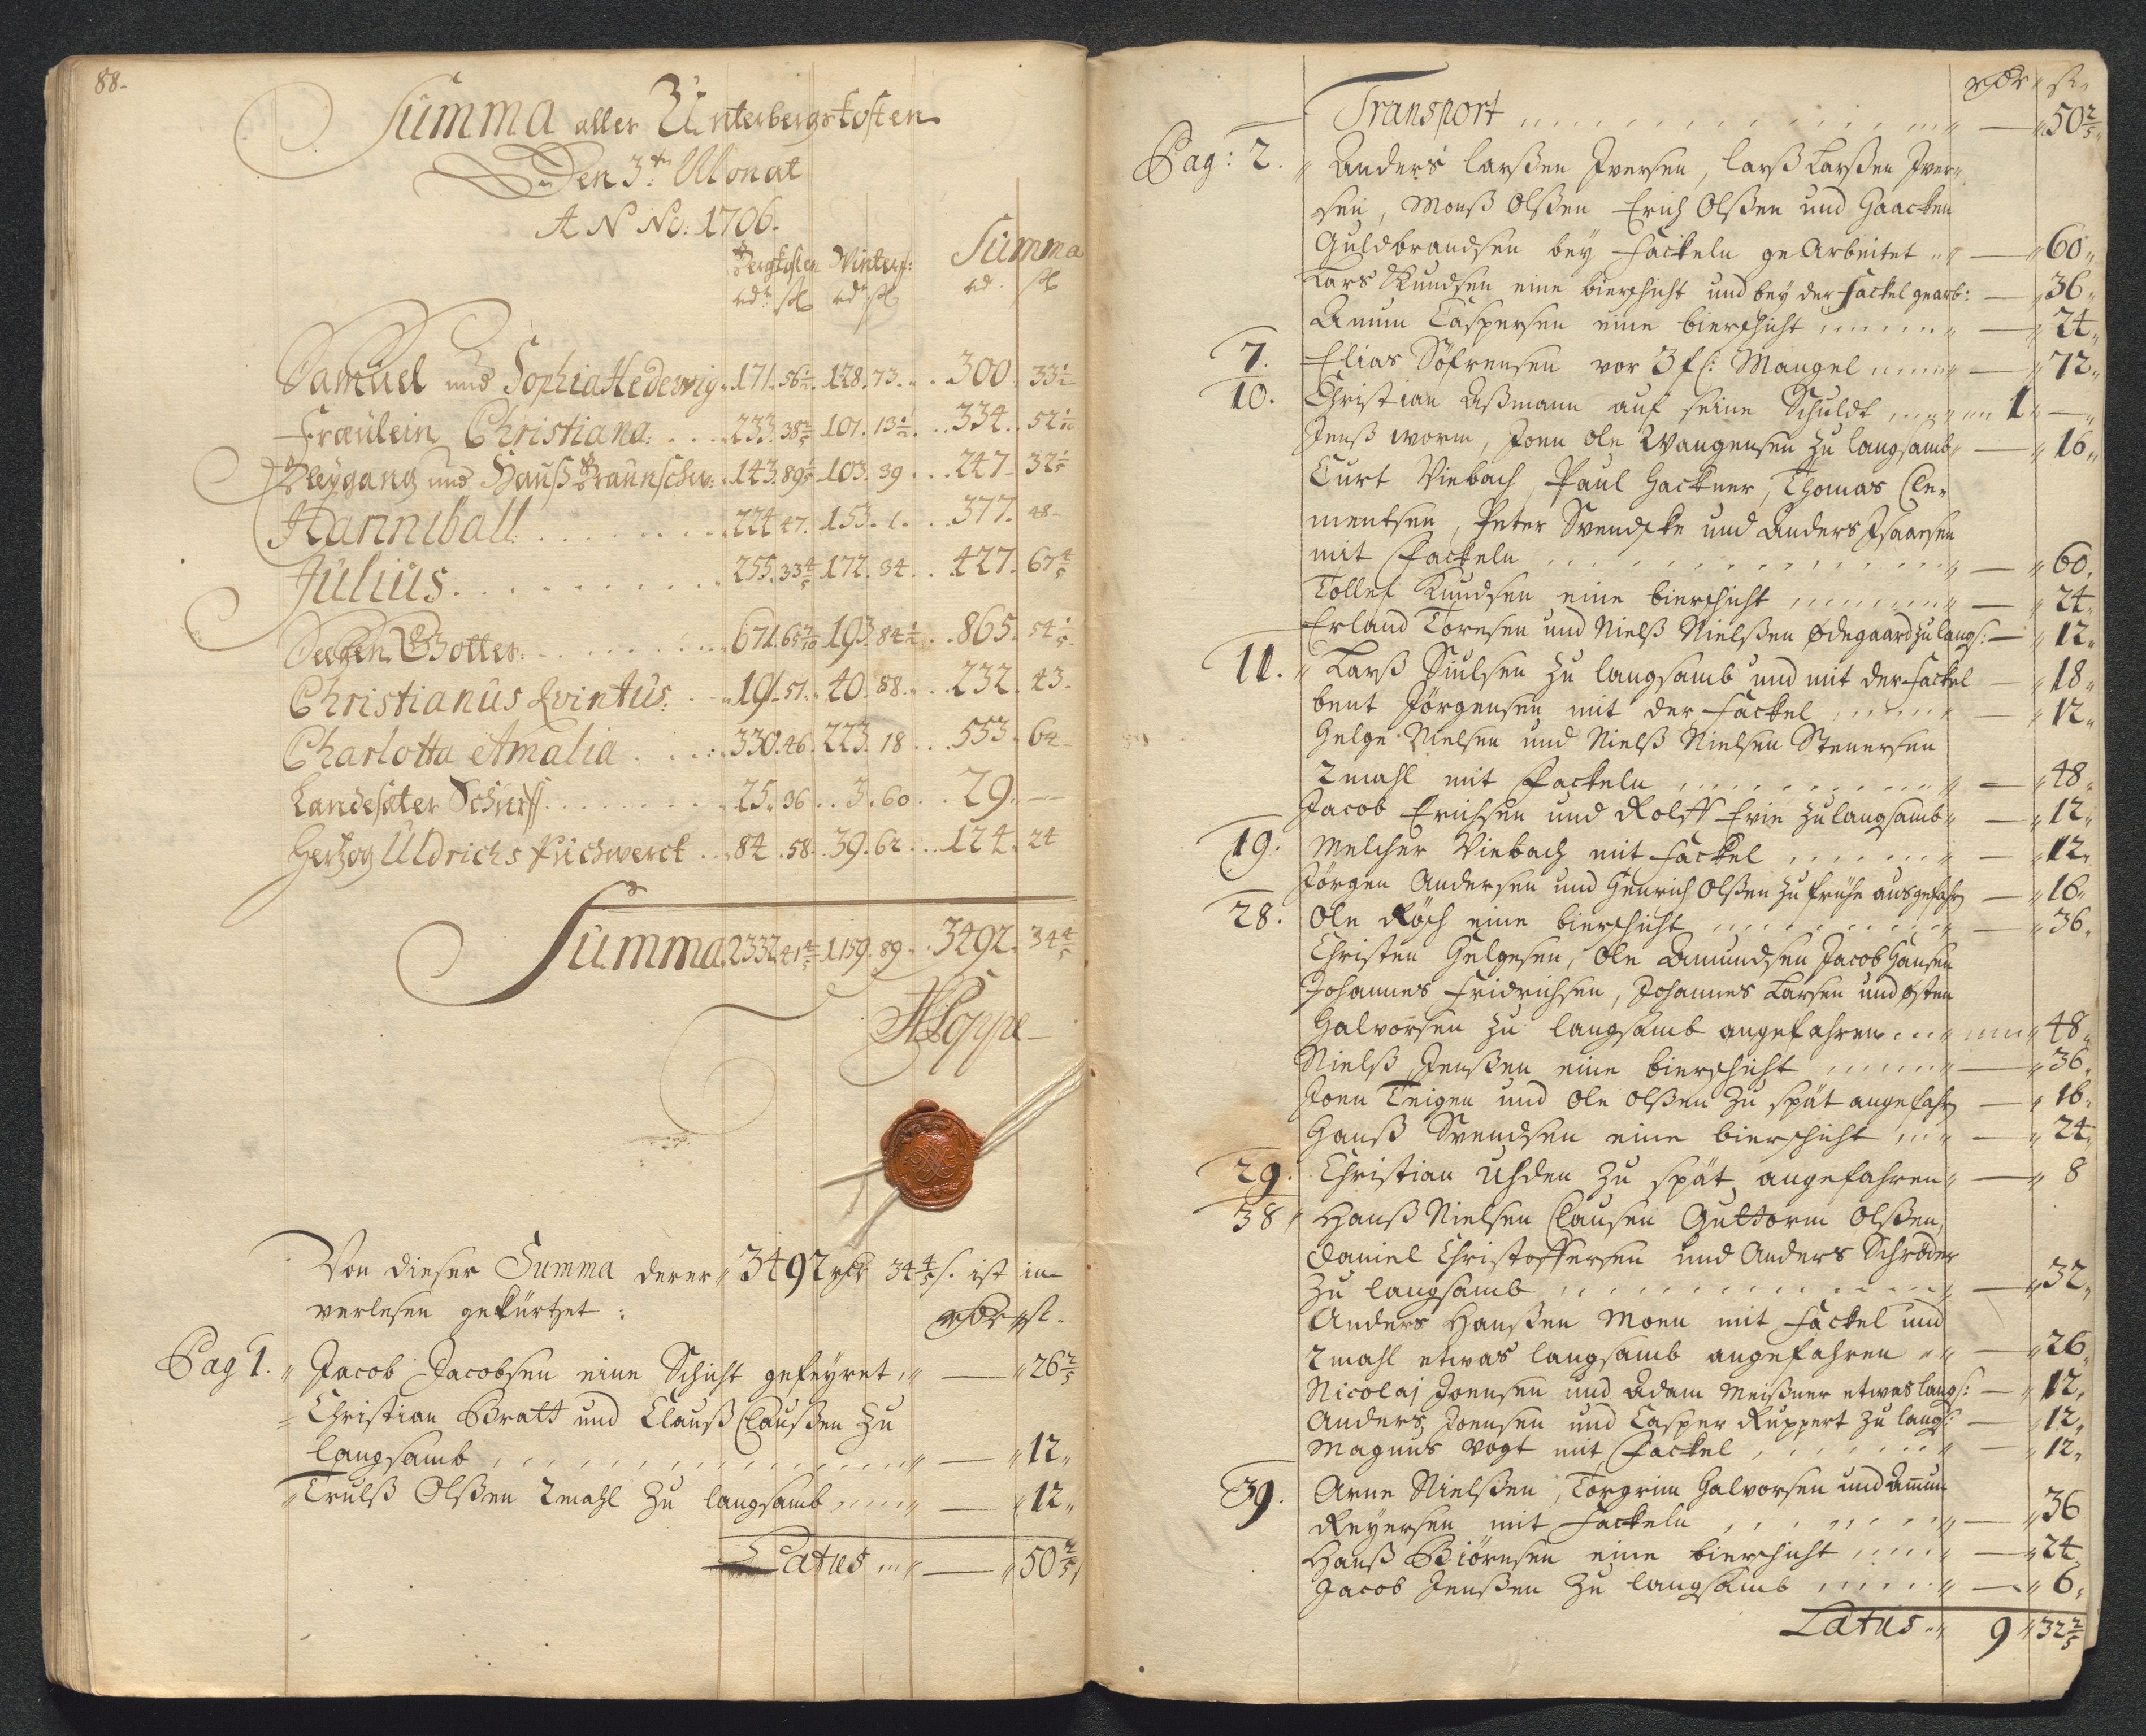 88.
Summa aller Unterbergskosten
Den 3ten Monat
ANNo: 1706.
Bergkosten Winters: Summa
rdr ß rdr ß rd. ß
Samuel und Sophia Hedewig. 171. 56 1/2. 128. 73. . . 300. 33 1/2
Fræulein Christiana. . . . 233. 38 3/5. 101. 13 1/2. . . 334. 52 1/10
Bleygang und Hauß Braunschw: . 143. 89 1/5. 103. 39 . . . 247. 32 1/5
Hanniball. . . . . . . . . 224. 47. 153. 1. . . 377. 48.
Julius. . . . . . . . . 255. 33 4/5. 172. 34. . . 427. 67 4/5
Seegen Gottes. . . . . . . . . 671. 65 7/10. 193. 84 1/2. . . 865. 54 1/5.
Christianus Qvintus. . . . 191. 51. 40. 88. . . 232. 43.
Charlotta Amalia . . . . 330. 46. 223. 18 . . . 553. 64.
Landesæter Schürff. . . . . . . . . 25. 36. . 3. 60. . . 29. —
Hertzog Uldrichs Puchwerck . . . 84. 58. . 39. 62. . . 124. 24
Summa. 2332. 41 4/5. 1159. 89. . . 3492. 34 4/5
HPoppe
Von dieser Summa derer 3492 rdr 34 4/5 ß. ist im
verlesen gekürtzet:
rdr ß.
Pag 1. Jacob Jacobsen eine Schicht gefeyret — 26 2/5
Christian Bratt und Clauß Claußen zu
langsamb — 12
Trulß Olßen 2 mahl zu langsamb — 12
Latus — 50 2/5
rdr ß
Transport — 50 2/5
Pag: 2. Anders Larßen Iversen, Larß Larßen Iver-
sen, Monß Olßen Erich Olßen und Haacken
Guldbrandsen bey Fackeln gearbeitet — 60
Lars Knudsen eine bierschicht und bey der Fackel gearb: — 36
Amun Caspersen eine bierschicht — 24
7. Elias Söfrensen vor 3 fß: Mangel — 72
10. Christian Aßmann auf seine Schuldt 1 —
Jenß Worm, Joen Ole Wangensen zu langsamb — 16
Curt Viebach, Paul Hackner, Thomas Cle-
mentsen, Peter Svendske und Anders Isaacsen
mit Fackeln — 60
Tollef Knudsen eine bierschicht — 24
Erland Toresen und Nielß Nielßen Ødegaard zu langs: — 12
11. Larß Siulsen zu langsamb und mit der Fackel — 18
bent Jörgensen mit der Fackel — 12
Helge Nielsen und Nielß Nielsen Stenersen
2 mahl mit Fackeln — 48
Jacob Erichsen und Rolff Evie zu langsamb — 12
19. Melcher Viebach mit Fackel — 12
Jörgen Andersen und Henrich Olßen zu frühe ausgefahr — 16
28. Ole Röch eine bierschicht — 36
Christen Helgesen, Ole Amundsen Jacob Hansen
Johannes Fridrichsen, Johannes Larsen und Østen
Halvorsen zu langsamb angefahren — 48
Nielß Jenßen eine bierschicht — 36
Joen Teigen und Ole Olßen zu spät angefahr — 16
Hanß Svendsen eine bierschicht — 24
29. Christian Uhden zu spät angefahren — 8
38 Hanß Nielsen Clausen Guttorm Olßen,
Daniel Christoffersen und Anders Schröder
zu langsamb — 32
Anders Hanßen Moen mit Fackel und
2 mahl etwas langsamb angefahren — 26
Nicolaj Joensen und Adam Meißner etwas langs: — 12
Anders Joensen und Casper Ruppert zu langs: — 12
Magnus Vogt mit Fackel — 12
39. Arne Nielßen, Torgrim Halvorsen und Amun
Reyersen mit Fackeln — 36
Hanß Biörnsen eine bierschicht — 24
Jacob Jenßen zu langsamb — 6
Latus 9 32 2/5